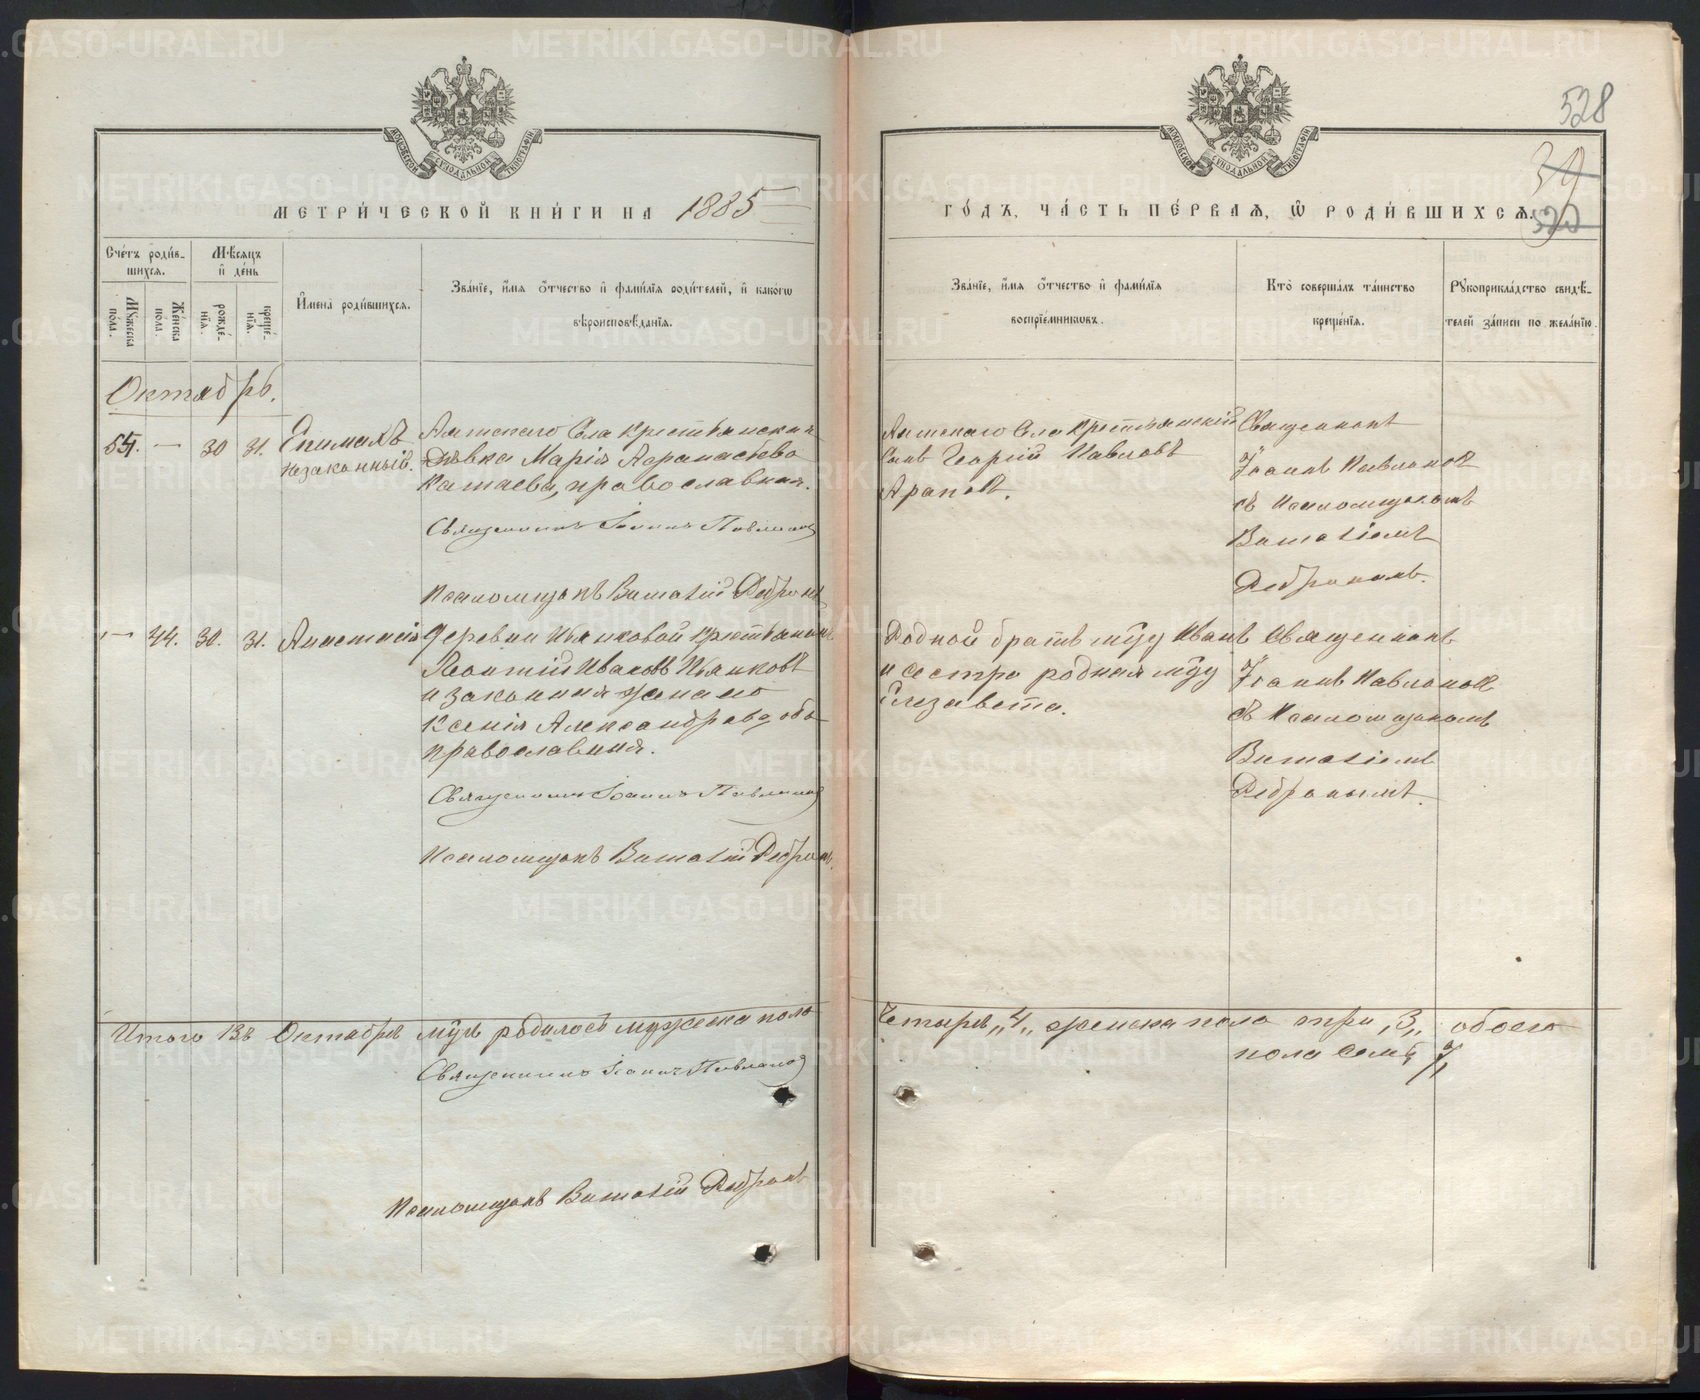 528
39
522
МОСКОВСКОЙ СѴНОДАЛЬНОЙ ТИПОГРАФІИ
МОСКОВСКОЙ СѴНОДАЛЬНОЙ ТИПОГРАФІИ
МЕТРИ́ЧЕСКОЙ КНИ́ГИ НА 1885
ГО́ДЪ, ЧА́СТЬ ПЕ́РВАЯ, Ѡ РОДИ́ВШИХСЯ.
Сче́тъ роди́в-
шихся.
Му́жеска
по́ла.
Же́нска
по́ла.
Мѣ́сяцъ
и҆ де́нь
рожде́-
нїя.
креще́-
нїя.
И҆мена̀ роди́вшихся.
Зва́нїе, и҆́мя о҆́тчество и҆ фами́лїя роди́телей, и҆ како́гѡ
вѣроисповѣ́данїя.
Зва́нїе, и҆́мя о҆́тчество и҆ фами́лїя
воспрїе́мникѡвъ.
Кто̀ соверша́лъ та́инство
креще́нїя.
Рꙋкоприкла́дство свидѣ́-
телей за́писи по жела́нїю.
Октябрь.
54. — 30 31. Епимахъ
незаконный.
Села Крестьянская
дѣвка Марія Аѳанасьева
Катаева, православная.
Священникъ Іоаннъ Павлиновъ
Псаломщикъ Виталій
Села Крестьянскій
сынъ Георгій Павловъ
Араповъ.
Священникъ
Іоаннъ Павлиновъ
съ Псаломщикомъ
Виталіемъ
— 44. 30. 31. Анастасія
Деревни крестьянинъ
Леонтій Ивановъ
и законная жена его
Ксенія Александрова, оба
православные.
Священникъ Іоаннъ Павлиновъ
Псаломщикъ Виталій
Родной братъ мужу Иванъ
и сестра родная мужу
Елизавета.
Священникъ
Іоаннъ Павлиновъ
съ Псаломщикомъ
Виталіемъ
Итого въ Октябрѣ м-цѣ родилось мужеска пола
четыре „4„ женска пола три „3„ обоего
пола семь 7
Священникъ Іоаннъ Павлиновъ
Псаломщикъ Виталій
METRIKI.GASO-URAL.RU